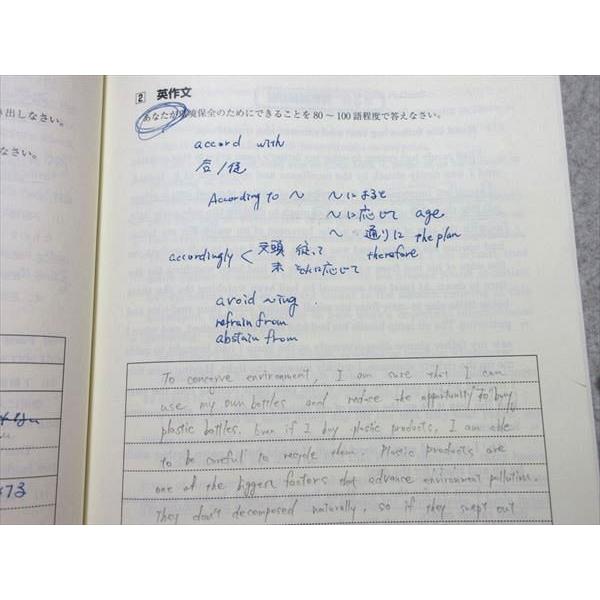 き出しなさい。
なさい。
2 英作文
あなたが環境保全のためにできることを80～100語程度で答えなさい。
accord with
合/従
According to ～ ～によると
～に応じて age
～ 通りに the plan
accordingly < 文頭 従って therefore
末 それに応じて
avoid ~ing.
refrain from
abstain from
To conserve environment, I am sure that I can
use my own bottles and reduce the opportunity to buy
plastic bottles. Even if I buy plastic products, I am able
to be careful to recycle them. Plastic products are
one of the biggest factors that advance environment pollution.
They don't decomposed naturally, so if they swept out